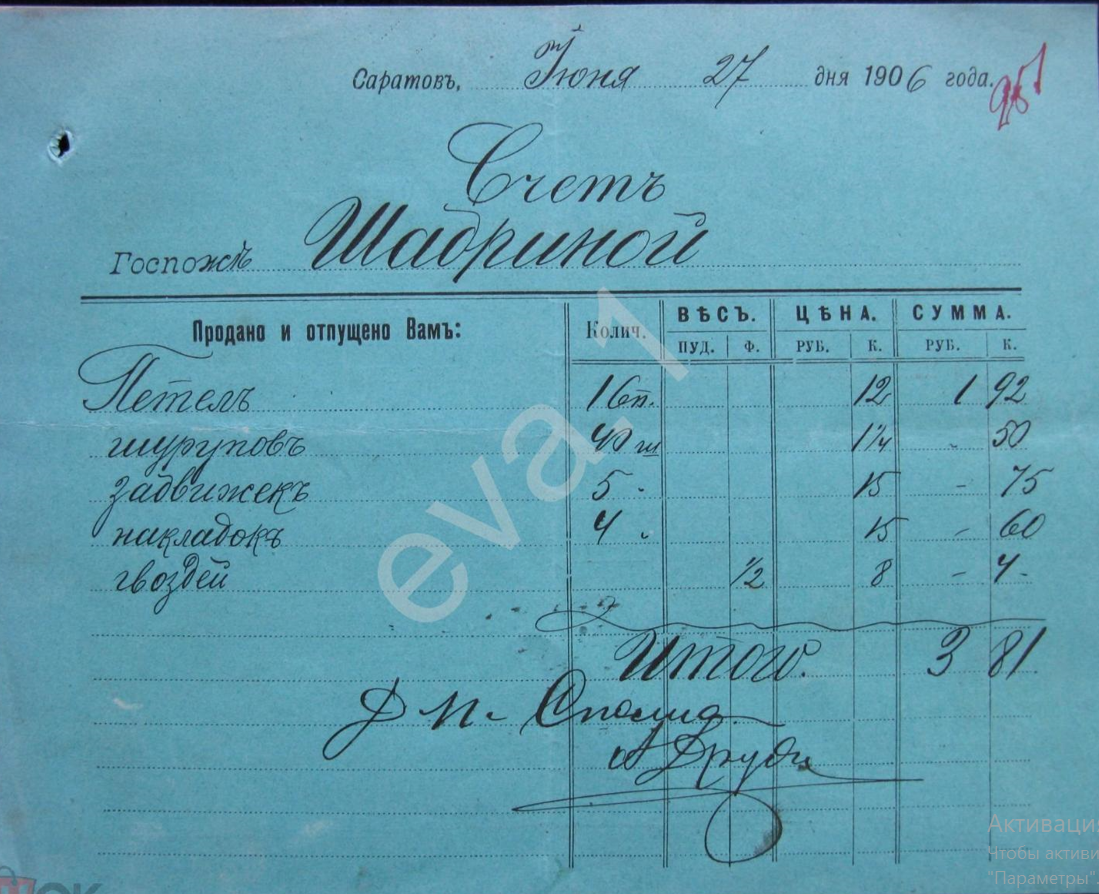 Саратовъ, Iюня 27 дня 1906 года.
Счетъ
Госпожѣ Шадриной
Продано и отпущено Вамъ: Колич. ВѢСЪ. ЦѢНА. СУММА.
ПУД. Ф. РУБ. К. РУБ. К.
Петель 16 п. 12 1 92
шуруповъ 40 ш 1 1/4 - 50
задвижекъ 5 " 15 - 75
накладокъ 4 " 15 - 60
гвоздей 1/2 8 - 4-
Итого. 3 81
eva.1
Активация
Чтобы активи
"Параметры".